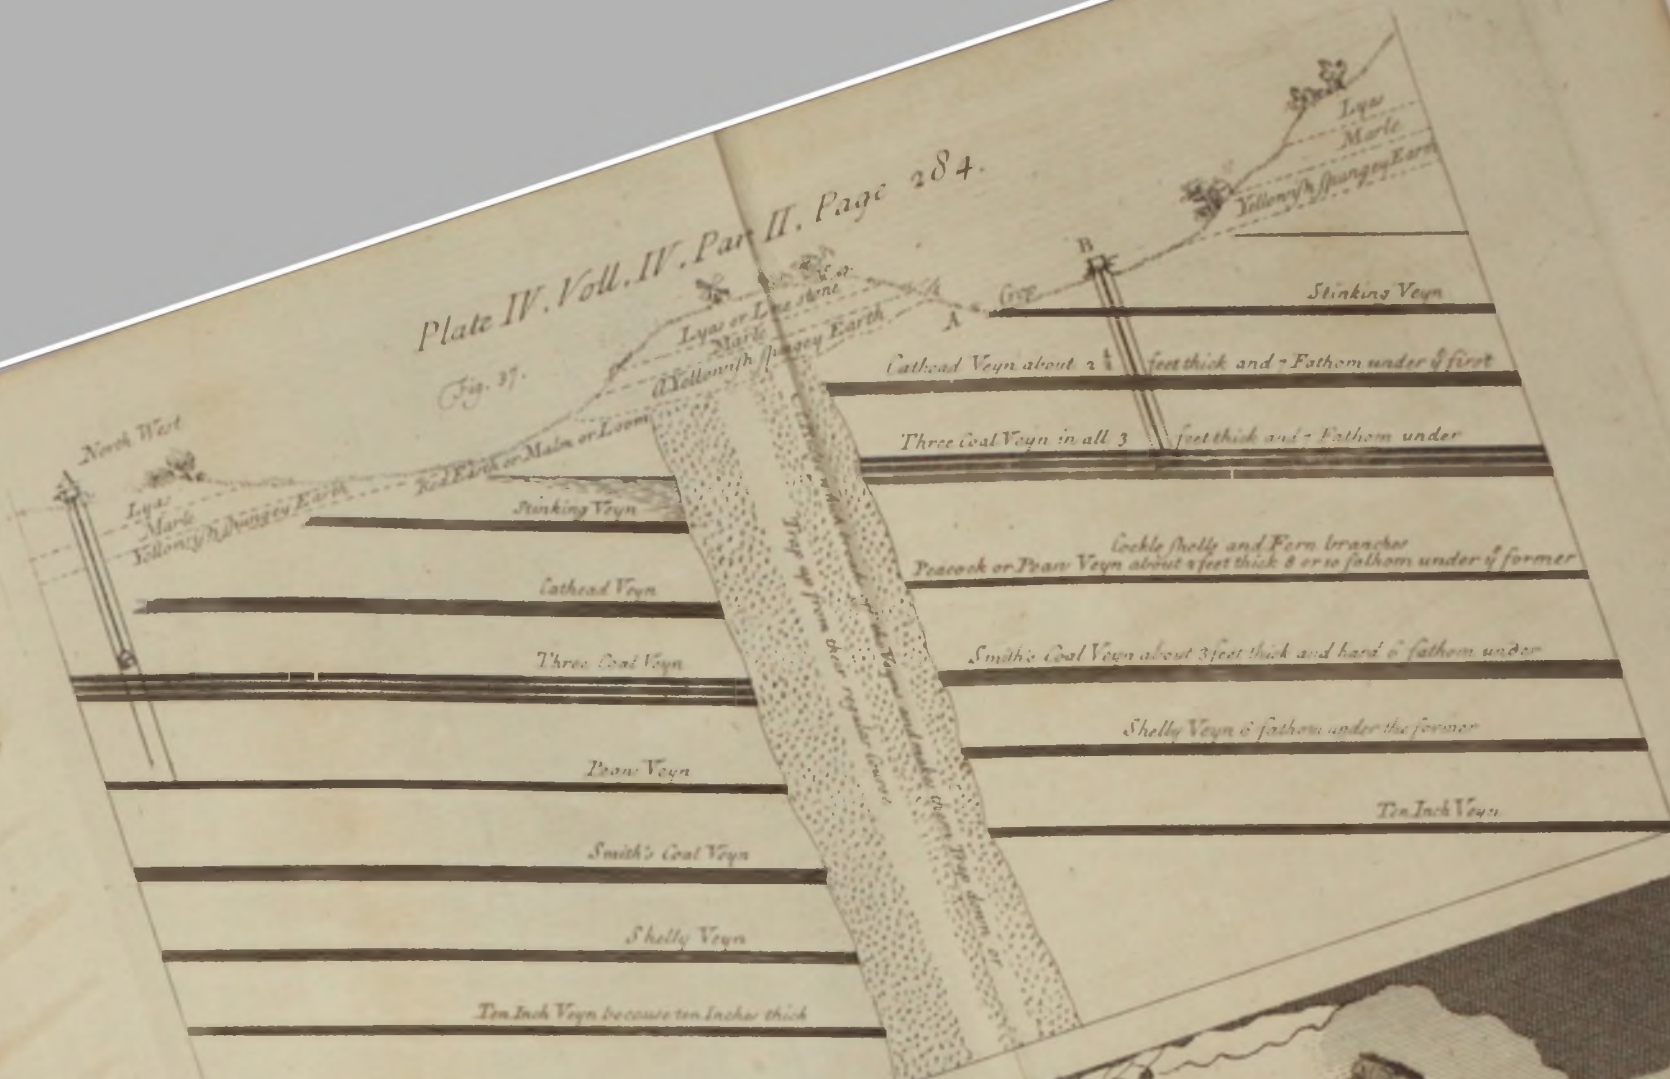 Plate IV. Voll. IV. Par II. Page 284.
Fig. 37.
North West
Lyas
Marle
Yellowish spungey Earth
Red Earth or Malm or Loom
Lyas or Lime stone
Marle
A Yellowish spungey Earth
A
Crop
B
Lyas
Marle
Yellowish spungey Earth
Stinking Veyn
Cathead Veyn
Three Coal Veyn
Peaw Veyn
Smith's Coal Veyn
Shelly Veyn
Ten Inch Veyn because ten Inches thick
which breaks of the Veyns and makes them Trap down or
Trap up from their regular course
Stinking Veyn
Cathead Veyn about 2 ½ feet thick and 7 Fathom under yͤ first
Three Coal Veyn in all 3 feet thick and 7 Fathom under
Cockle shells and Fern branches
Peacock or Peaw Veyn about feet thick 8 or 10 fathom under yͤ former
Smith's Coal Veyn about 3 feet thick and hard 6 fathom under
Shelly Veyn 6 fathom under the former
Ten Inch Veyn